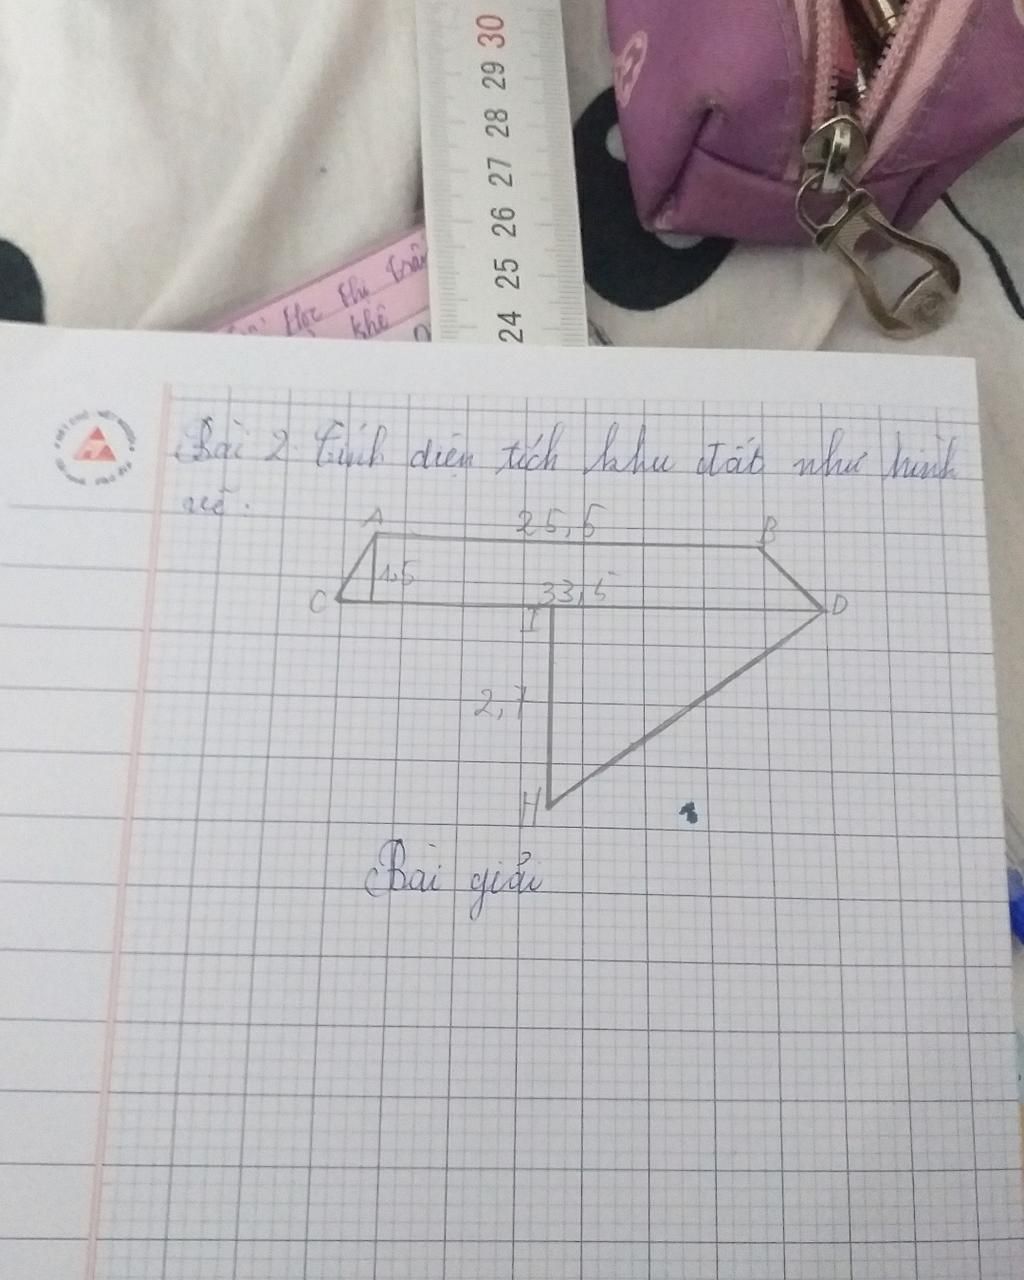 30
29
28
27
26
25
24
Học thị trấn
khê
Bài 2. Tính diện tích khu đất như hình
vẽ.
A 25,5 B
1,5
C 33,5 D
I
2,7
H
Bài giải